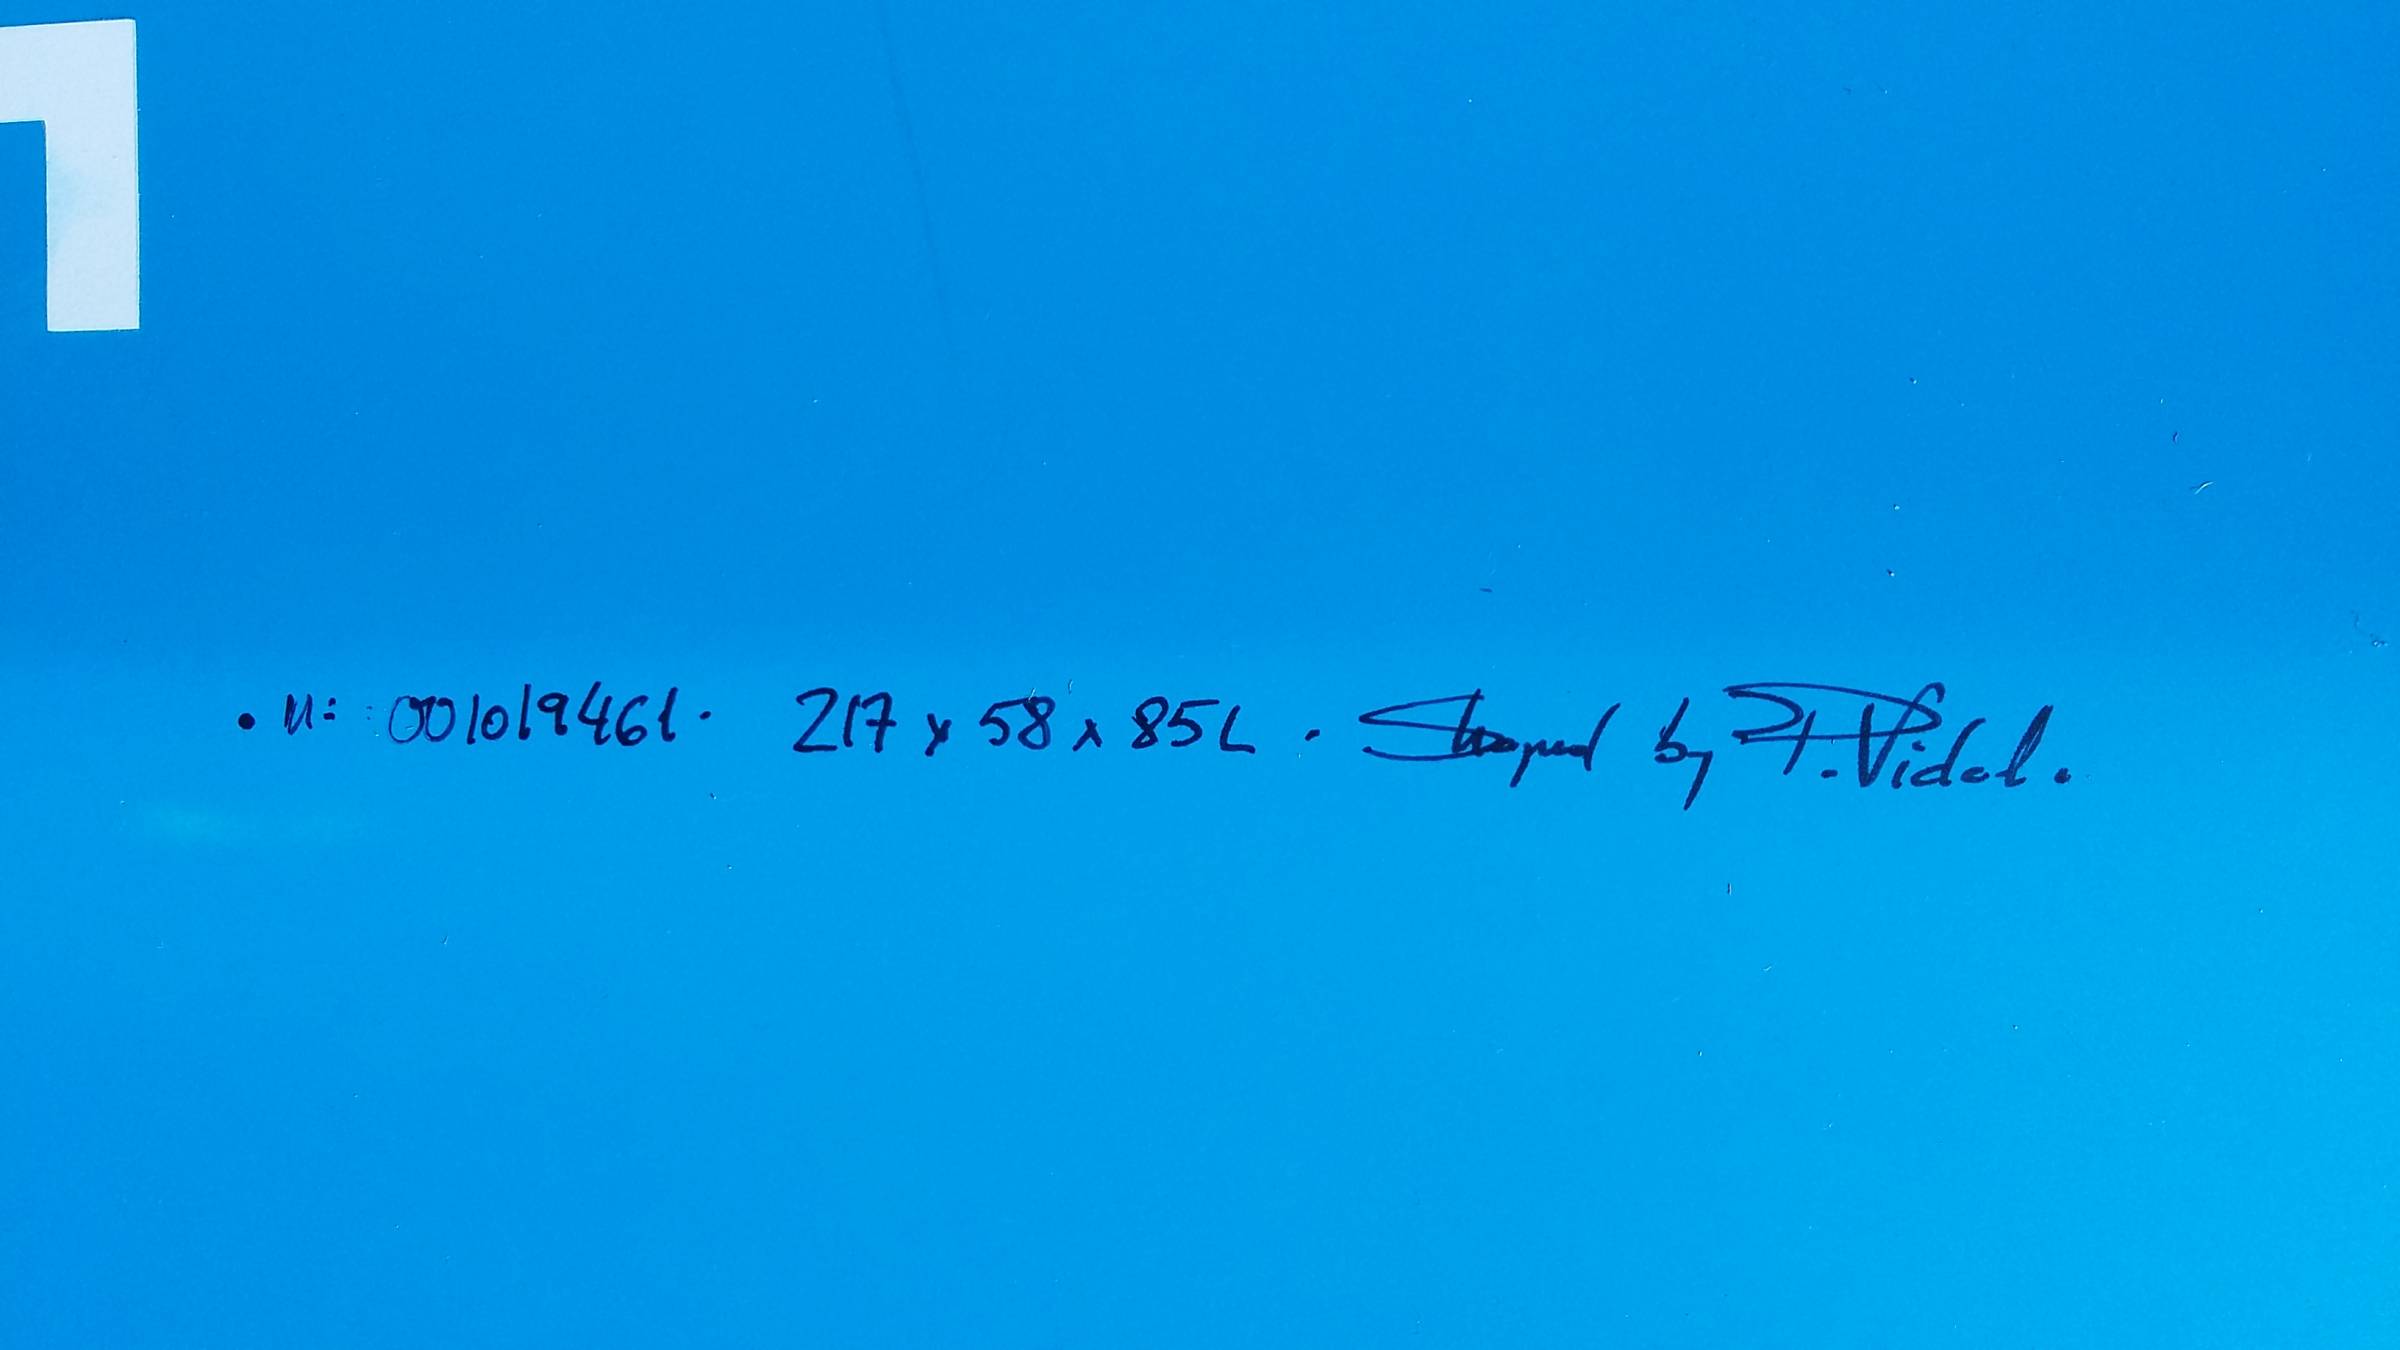 • n: 001019461. 217 x 58 x 85L . Shaped by F. Vidal.